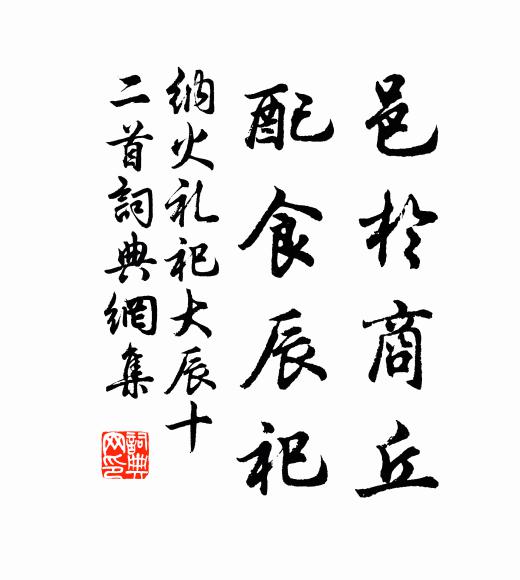 邑於商丘
配食辰祀
纳火礼祀大辰十
二首詞典網集
詞典网印